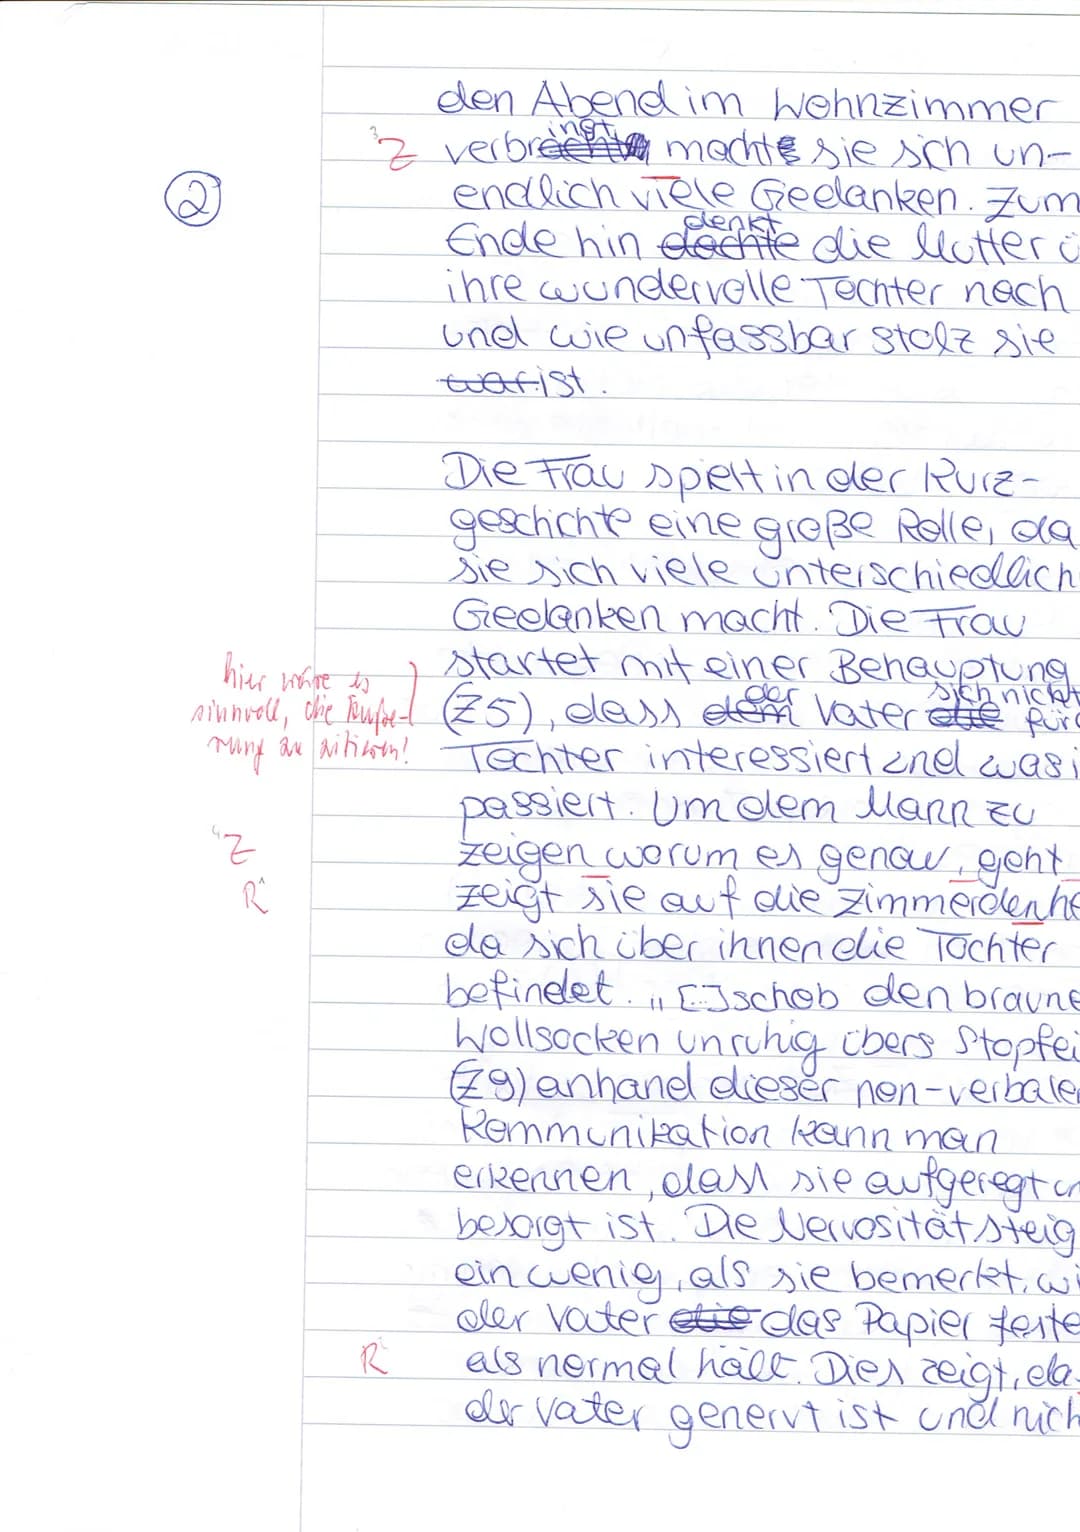 ②
den Abend im Wohnzimmer
³Z verbringt machte sie sich un-
endlich viele Gedanken. Zum
Ende hin denkt die Mutter ü
ihre wundervolle Tochter nach
und wie unfassbar stolz sie
war ist.
Die Frau spielt in der Kurz-
geschichte eine große Rolle, da
sie sich viele unterschiedlich
Gedanken macht. Die Frau
startet mit einer Behauptung
(Z5), dass der Vater sich nicht für
Tochter interessiert und was i
passiert. Um dem Mann zu
zeigen worum es genau, geht
zeigt sie auf die Zimmerdenhe
da sich über ihnen die Tochter
befindet. „[...]schob den braune
Wollsocken unruhig übers Stopfei
(Z9) anhand dieser non-verbale
Kommunikation kann man
erkennen, dass sie aufgeregt un
besorgt ist. Die Nervosität steig
ein wenig, als sie bemerkt, wi
der Vater die das Papier feste
als normal hält. Dies zeigt, da
der Vater genervt ist und nich
hier wäre es
sinnvoll, die Äuße-
rung zu zitieren!
⁴Z
R
R